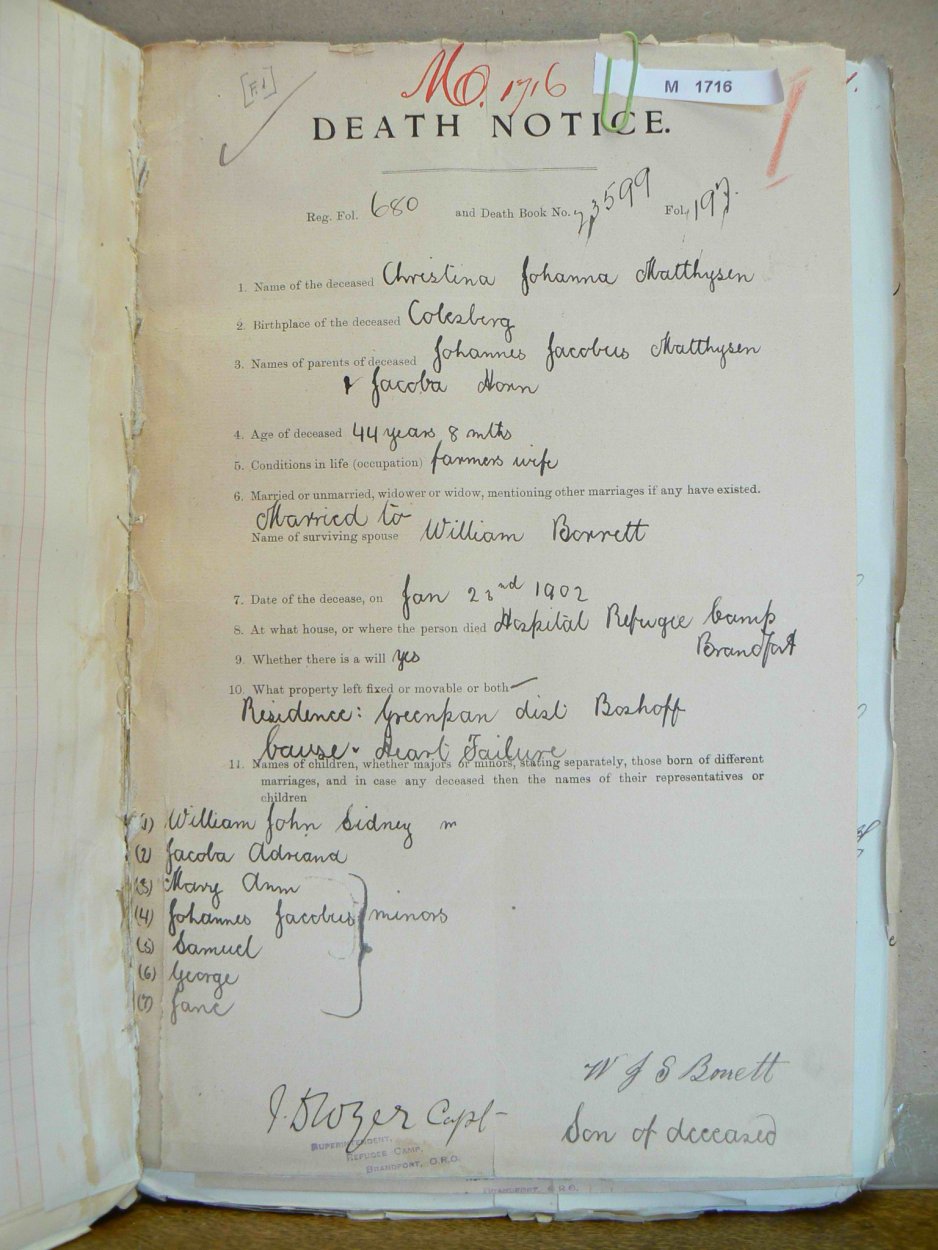 [F.1]
MO. 1716
M 1716
DEATH NOTICE.
Reg. Fol. 680 and Death Book No. 23599 Fol. 197.
1. Name of the deceased Christina Johanna Matthysen
2. Birthplace of the deceased Colesberg
3. Names of parents of deceased Johannes Jacobus Matthysen
& Jacoba Horn
4. Age of deceased 44 years 8 mths
5. Conditions in life (occupation) farmers wife
6. Married or unmarried, widower or widow, mentioning other marriages if any have existed.
Married to
Name of surviving spouse William Borrett
7. Date of the decease, on Jan 23nd 1902
8. At what house, or where the person died Hospital Refugee Camp
Brandfort
9. Whether there is a will yes
10. What property left fixed or movable or both
Residence: Greenpan dist Boshoff
Cause. Heart Failure
11. Names of children, whether majors or minors, stating separately, those born of different
marriages, and in case any deceased then the names of their representatives or
children
(1) William John Sidney m
(2) Jacoba Adriana
(3) Mary Ann
(4) Johannes Jacobus minors
(5) Samuel
(6) George
(7) Jane
W J S Borrett
Capt
Son of deceased
SUPERINTENDENT,
REFUGEE CAMP,
BRANDFORT, O.R.O.